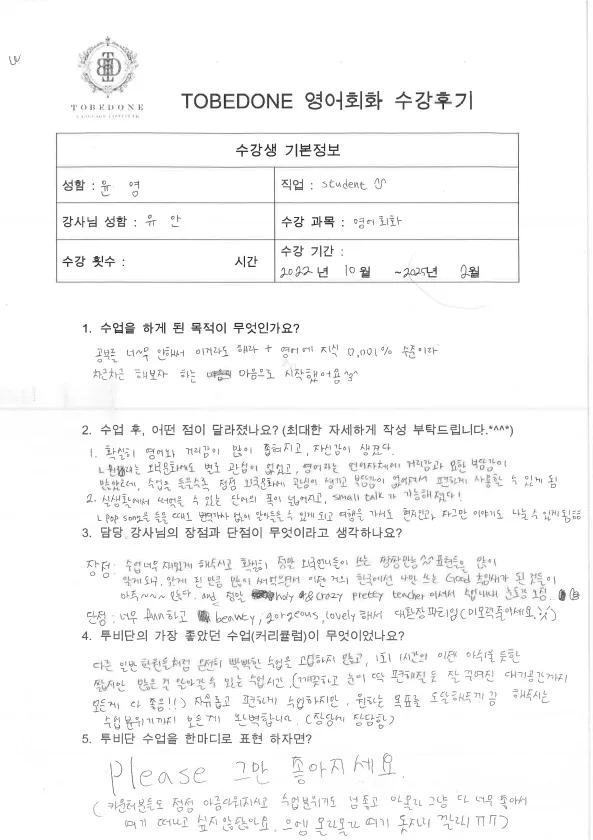 TOBEDONE
LANGUAGE INSTITUTE
TOBEDONE 영어회화 수강후기
수강생 기본정보
성함 : 윤 영
직업 : student
강사님 성함 : 유 안
수강 과목 : 영어회화
수강 횟수 : 시간
수강 기간 :
2022년 10월 ~2025년 2월
1. 수업을 하게 된 목적이 무엇인가요?
공부를 너~무 안해서 이거라도 해라 + 영어에 지식 0.001% 수준이라
차근차근 해보자 하는 마음으로 시작했어욤^3^
2. 수업 후, 어떤 점이 달라졌나요? (최대한 자세하게 작성 부탁드립니다.*^^*)
1. 확실히 영어와 거리감이 많이 좁혀지고, 자신감이 생겼다.
외국문화에도 별로 관심이 없었고, 영어라는 언어자체에 거리감과 묘한 부담감이
많았는데, 수업을 들을수록 점점 외국문화에 관심이 생기고 부담감이 없어져서 편하게 사용할 수 있게 됨
2. 실생활에서 써먹을 수 있는 단어의 폭이 넓어지고, small talk가 가능해졌다!
ㄴpop song을 들을 때도 번역가사 없이 알아들을 수 있게 되고 여행을 가서도 현지인과 자그만 이야기도 나눌 수 있게됨
3. 담당 강사님의 장점과 단점이 무엇이라고 생각하나요?
장점 : 수업 너무 재밌게 해주시고 확실히 정말 외국언니들이 쓰는 짱짱만능 표현들을 많이
알게되구, 알게 된 만큼 많이 써먹으면서 이젠 거의 한국에선 나만 쓰는 Good 표현사가 된 것들이
아주~~~ 많다. and 정말 holy &crazy pretty teacher 이셔서
단점 : 너무 fun하고 beauty, gorgeous, lovely 해서 대환장파티임 (이모력죽이세요
4. 투비단의 가장 좋았던 수업(커리큘럼)이 무엇이었나요?
다른 일반 학원들처럼 완전히 빡빡한 수업을 고집하지 않고, 1회 1시간이 이젠 아쉬울 듯한
짧지만 많은 걸 알아갈 수 있는 수업시간, (깨끗하고 눈이 딱 편해질 듯 잘 꾸며진 대기공간까지
모든게 다 좋음!!) 자유롭고 편하게 수업하지만, 원하는 목표를 도달해주게끔 해주시는
수업분위기까지 모든게 완벽합니다. (장담해 장담함)
5. 투비단 수업을 한마디로 표현 하자면?
Please 그만 좋아지세요.
(카운터분들도 점점 아름다워지시고 수업분위기도 넘좋고 아몰라 그냥 다 너무 좋아서
여기 떠나고 싶지 않단말야요. 으엥 몰라몰라 여기 돗자리 깔래!! ㅠㅠ)